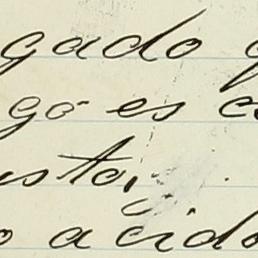 gado q
go es es
usta,
o acido